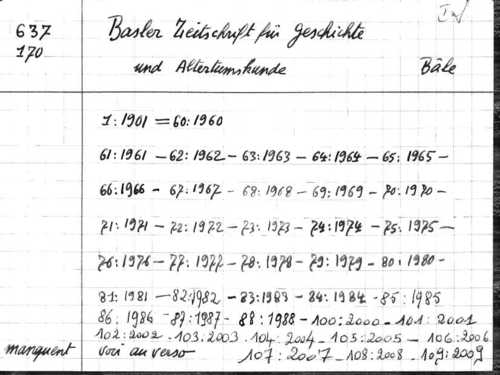 637 Basler Zeitschrift für geschichte
170 und Altertumskunde Bâle
1:1901 = 60:1960
61:1961 - 62:1962 - 63:1963 - 64:1964 - 65:1965 -
66:1966 - 67:1967 - 68:1968 - 69:1969 - 70:1970 -
71:1971 - 72:1972 - 73:1973 - 74:1974 - 75:1975 -
76:1976 - 77:1977 - 78:1978 - 79:1979 - 80:1980 -
81:1981 - 82:1982 - 83:1983 - 84:1984 - 85:1985
86:1986 - 87:1987 - 88:1988 - 100:2000 - 101:2001
102:2002 - 103.2003. 104:2004 - 105:2005 - 106:2006
manquent voir au verso 107:2007 - 108:2008 - 109:2009